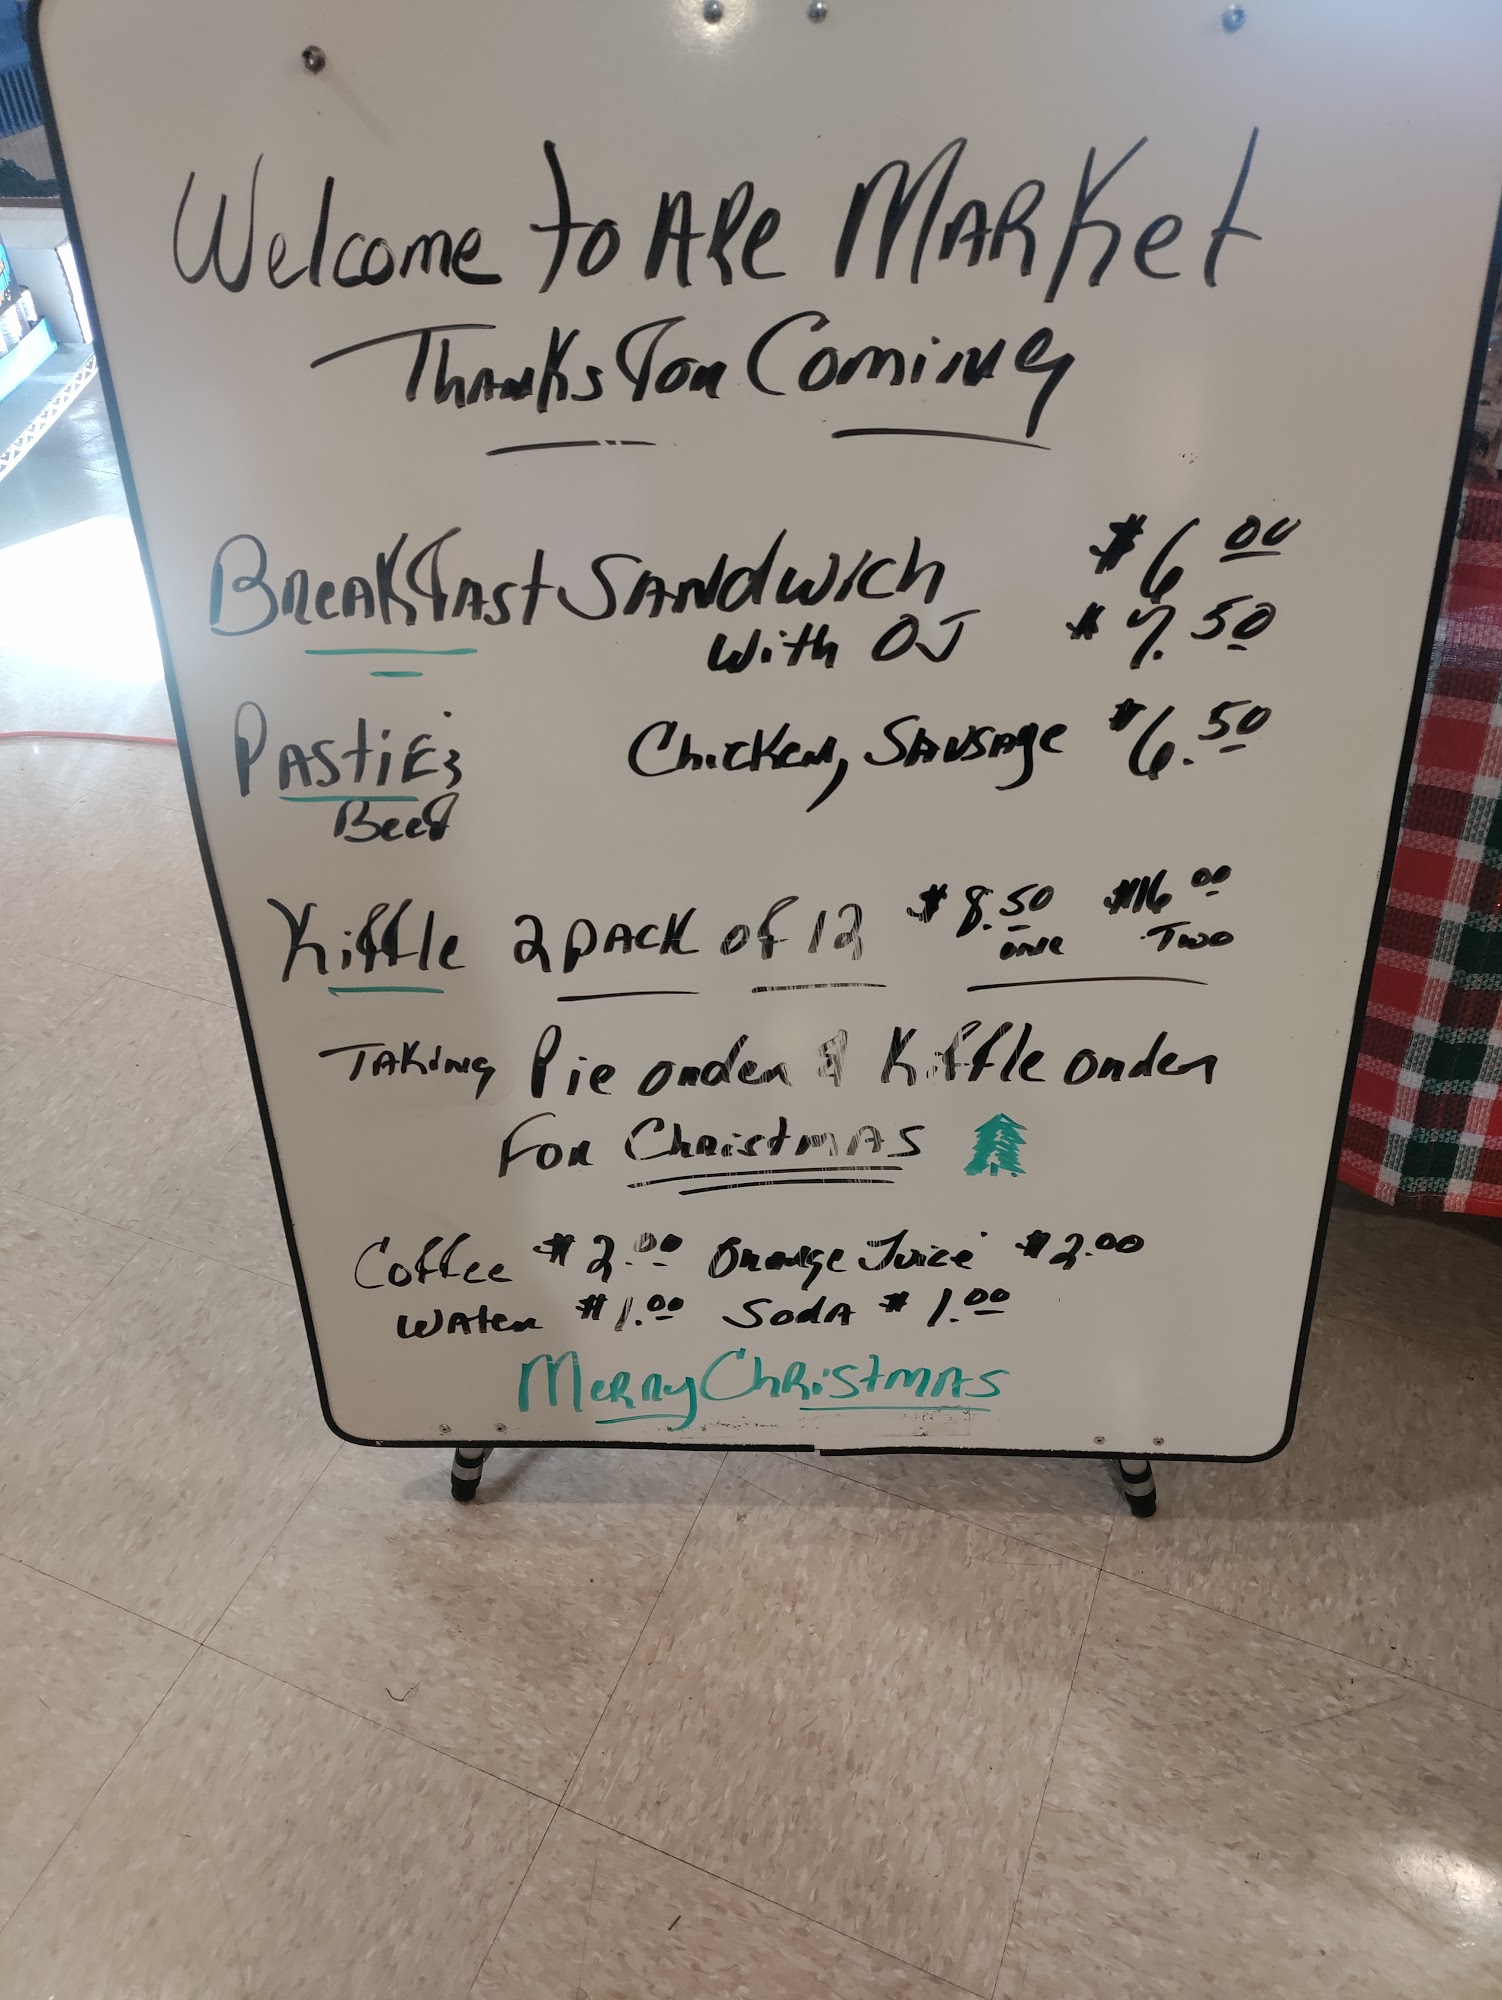 Welcome to Are Market
Thanks For Coming
Breakfast Sandwich $6.00
With OJ $7.50
Pasties Chicken, Sausage $6.50
Beef
Kiffle 2 pack of 12 $8.50 one $16.00 Two
Taking Pie order & Kiffle order
For Christmas
Coffee $2.00 Orange Juice $2.00
Water $1.00 Soda $1.00
Merry Christmas